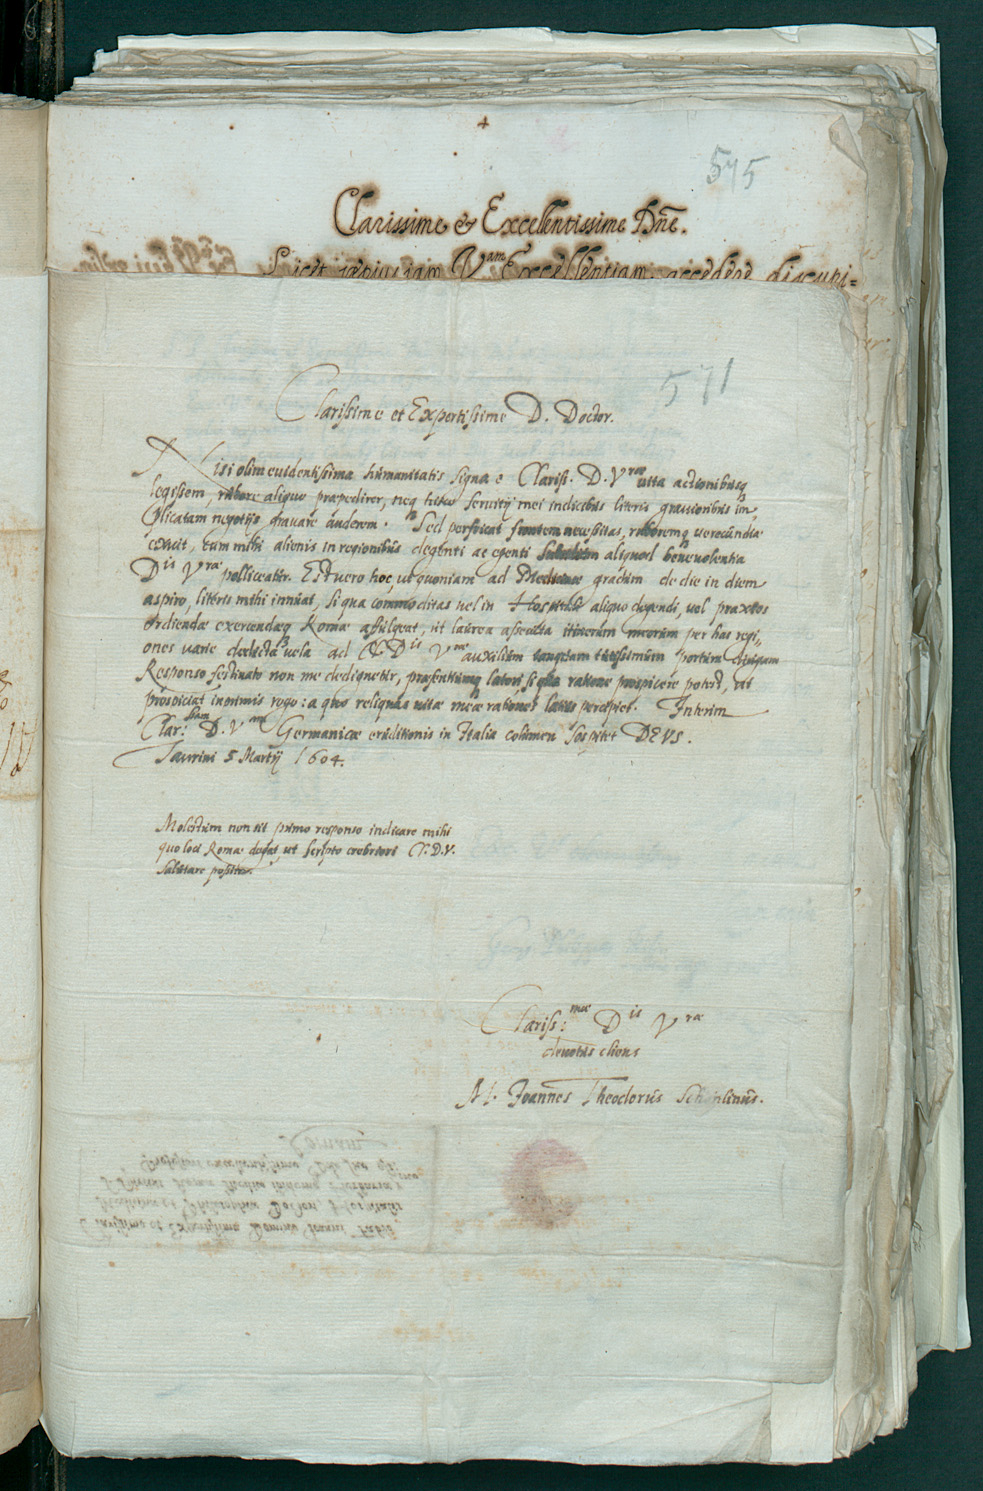 4
575
Clarissime & Excellentissime Dñe.
Licet sæpius iam V^am Excellentiam accedere diacupi=
571
Clarissime et Expertissime D. Doctor.
Nisi olim euidentissima humanitatis signa e Clariss. D. V^ræ uita actionibusq
legissem, rubore aliquo præpedirer, neq hisce seruitij mei indicibus literis grauioribus im,
plicatam negotijs grauare auderem. Sed perfricat frontem necessitas, ruboremq uerecundiæ
excutit, cum mihi alienis in regionibus degenti ac egenti aliquod beneuolentia
D^is V^ræ polliceatur. Est uero hoc, ut quoniam ad Medicinæ gradum de die in diem
aspiro, literis mihi innuat, si qua commoditas uel in Hospitali aliquo degendi, uel praxeos
ordiendæ exercendæq Romæ affulgeat, ut laurea assecuta itinerum meorum per has regi,,
ones varie deflecta uela ad D^is V^ræ auxilium tanquam tutissimum portum dirigam
Responso festinato non me dedignetur, præsentiumq latori si qua ratione prospicere potest, ut
prospiciat inprimis rogo: a quo reliquas uitæ meæ rationes latius percipiet. Interim
Clar:^ssimam D. V^am Germanicæ eruditionis in Italia columen sospitet DEVS.
Taurini 5 Martij 1604.
Molestum non sit primo responso indicare mihi
quo loci Romæ degat, ut scripto crebriori C. D. V.
salutare possim.
Clariss:^mæ D^is V^ræ
deuotus cliens
M. Joannes Theodorus Schönlinus.